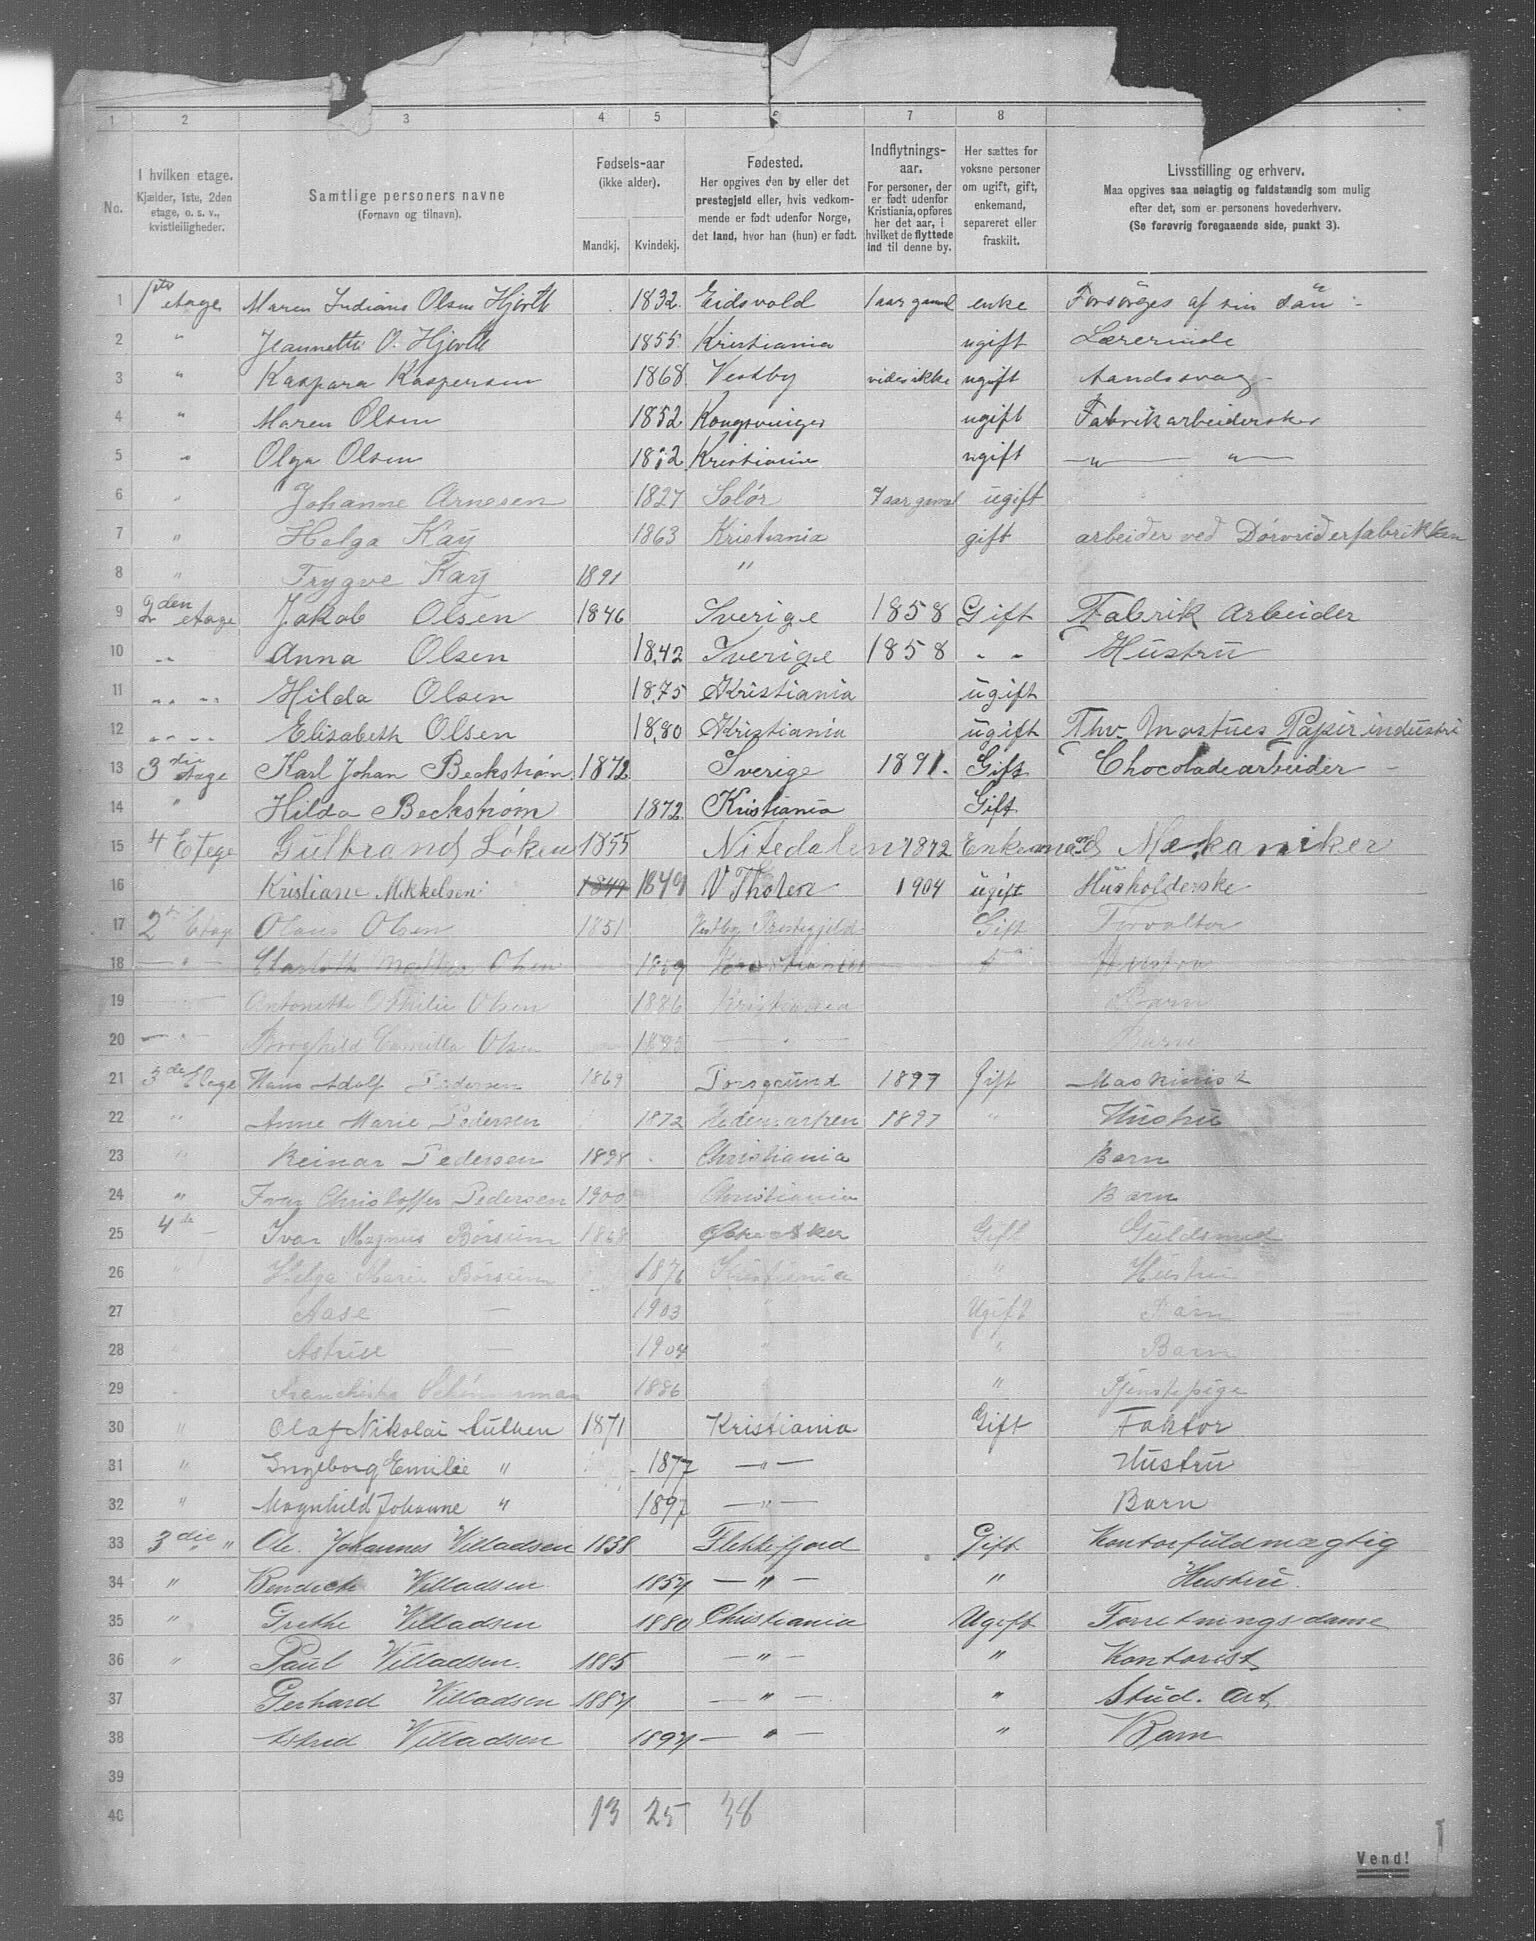 1 2 3 4 5 6 7 8
No.
I hvilken etage.
Kjælder, 1ste, 2den
etage, o. s. v.,
kvistleiligheder.
Samtlige personers navne
(Fornavn og tilnavn).
Fødsels-aar
(ikke alder).
Mandkj. Kvindekj.
Fødested.
Her opgives den by eller det
prestegjeld eller, hvis vedkom-
mende er født udenfor Norge,
det land, hvor han (hun) er født.
Indflytnings-
aar.
For personer, der
er født udenfor
Kristiania, opføres
her det aar, i
hvilket de flyttede
ind til denne by.
Her sættes for
voksne personer
om ugift, gift,
enkemand,
separeret eller
fraskilt.
Livsstilling og erhverv.
Maa opgives saa nøiagtig og fuldstændig som mulig
efter det, som er personens hovederhverv.
(Se forøvrig foregaaende side, punkt 3).
1 1ste etage Maren Indiane Olsen Hjorth 1832. Eidsvold 1 aar gaml enke Forsørges af sin sön
2 " Jeannette O. Hjorth 1855 Kristiania ugift Lærerinde
3 " Kaspara Kaspersen 1868 Vestby vides ikke ugift Aandssvag
4 " Maren Olsen 1852 Kongsvinger ugift Fabrikarbeiderske
5 " Olga Olsen Kristiania ugift — " — " —
6 " Johanne Arnesen 1827 Solør 7 aar gamel ugift
7 " Helga Kay 1863 Kristiania gift arbeider ved
8 " Trygve Kay 1891 "
9 2den etage Jakob Olsen 1846 Sverige 1858 Gift Fabrik arbeider
10 " Anna Olsen 1842 Sverige 1858 " " Hustru
11 " " Hilda Olsen 1875 Kristiania ugift
12 " " Elisabeth Olsen 1880 Kristiania ugift Thv Mastues Papirindustri
13 3die etage Karl Johan Beckstrøm 1872 Sverige 1891. Gift Chocoladearbeider
14 " Hilda Beckstrøm 1872 Kristiania Gift
15 4 Etege Gulbrand Løken 1855 Nitedalen 1872 Enkemand Mekaniker
16 Kristiane Mikkelsen 1849 1849 V Thoten 1904 ugift Husholderske
17 2 Etage Olaus Olsen 1851 Vestby Prestegjeld Gift Forvalter
18 — " — Olsen Kristiania Hustru
19 Antonette Othilie Olsen 1886 Kristiania Barn
20 — " — Borghild Camilla Olsen — " — Barn
21 3die Etage Hans Adolf Pedersen 1869 Porsgrund 1897 Gift Maskinist
22 " Anne Marie Pedersen 1872 Hedemarken 1897 " Hustru
23 " Reinar Pedersen 1898 Christiania Barn
24 " Ivar Christoffer Pedersen 1900 Christiania Barn
25 4de — Ivar Magnus Børsum 1868 Østre Aker Gift Guldsmed
26 " Helga Marie Børsum 1876 Kristiania " Hustru
27 Aase — 1903 " Ugift Barn
28 " Astrid — 1904 " " Barn
29 1886 " " Tjenstepige
30 " Olaf Nikolai 1871 Kristiania Gift Faktor
31 " Ingeborg Emilie " 1877 — " — Hustru
32 " Magnhild Johanne " 1897 — " — Barn
33 3die " Ole Johannes Villadsen 1838 Flekkefjord Gift Kontorfuldmægtig
34 " Bendicte Villadsen — " — " Hustru.
35 " Grethe Villadsen 1880 Christiania Ugift Forretningsdame
36 " Paul Villadsen 1885 — " — " Kontorist
37 Gerhard Villadsen — " — " Stud. Art.
38 Astrid Villadsen — " — " Barn
39
40 13 25 38
Vend!